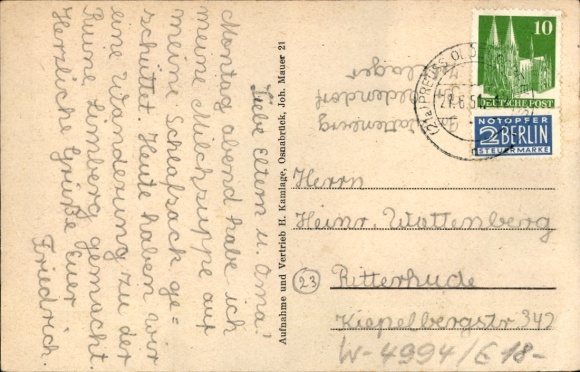 Liebe Eltern u. Oma!
Montag abend habe ich
meine Milchsuppe auf
meine Schlafsack ge=
schüttet. Heute haben wir
eine Wanderung zu der
Ruine Limberg gemacht.
Herzliche Grüße Euer
Friedrich.
Aufnahme und Vertrieb H. Kamlage, Osnabrück, Joh. Mauer 21
10
DEUTSCHE POST
NOTOPFER
2 BERLIN
STEUERMARKE
(21a) PREUSS OLD
27.6.5
Wattenberg
Herrn
Heinr. Wattenberg
(23) Ritterhude
Kiepelbergstr 342
W-4994/E 18-